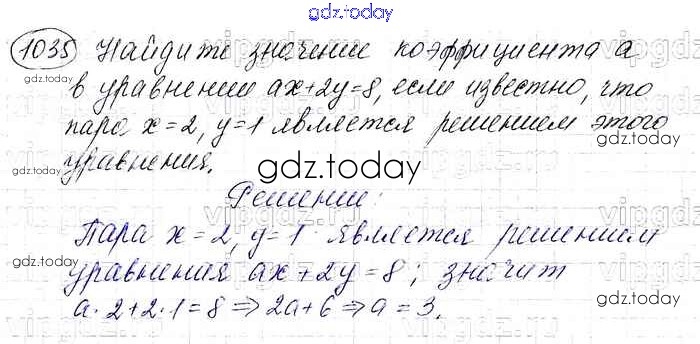 gdz.today
1035 Найдите значение коэффициента a
gdz.today
в уравнении ax+2y=8, если известно, что
пара x=2, y=1 является решением этого
gdz.today
уравнения.
gdz.today
Решение:
Пара x=2, y=1 является решением
gdz.today
уравнения ax+2y=8; значит
gdz.today
a·2+2·1=8 ⇒ 2a+6 ⇒ a=3.
gdz.today